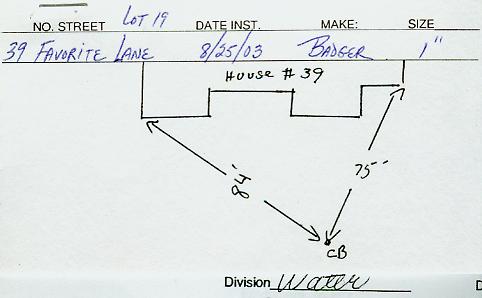 NO. STREET LOT 19 DATE INST. MAKE: SIZE
39 FAVORITE LANE 8/25/03 BADGER 1"
HOUSE # 39
84'
75'
CB
Division Water
D